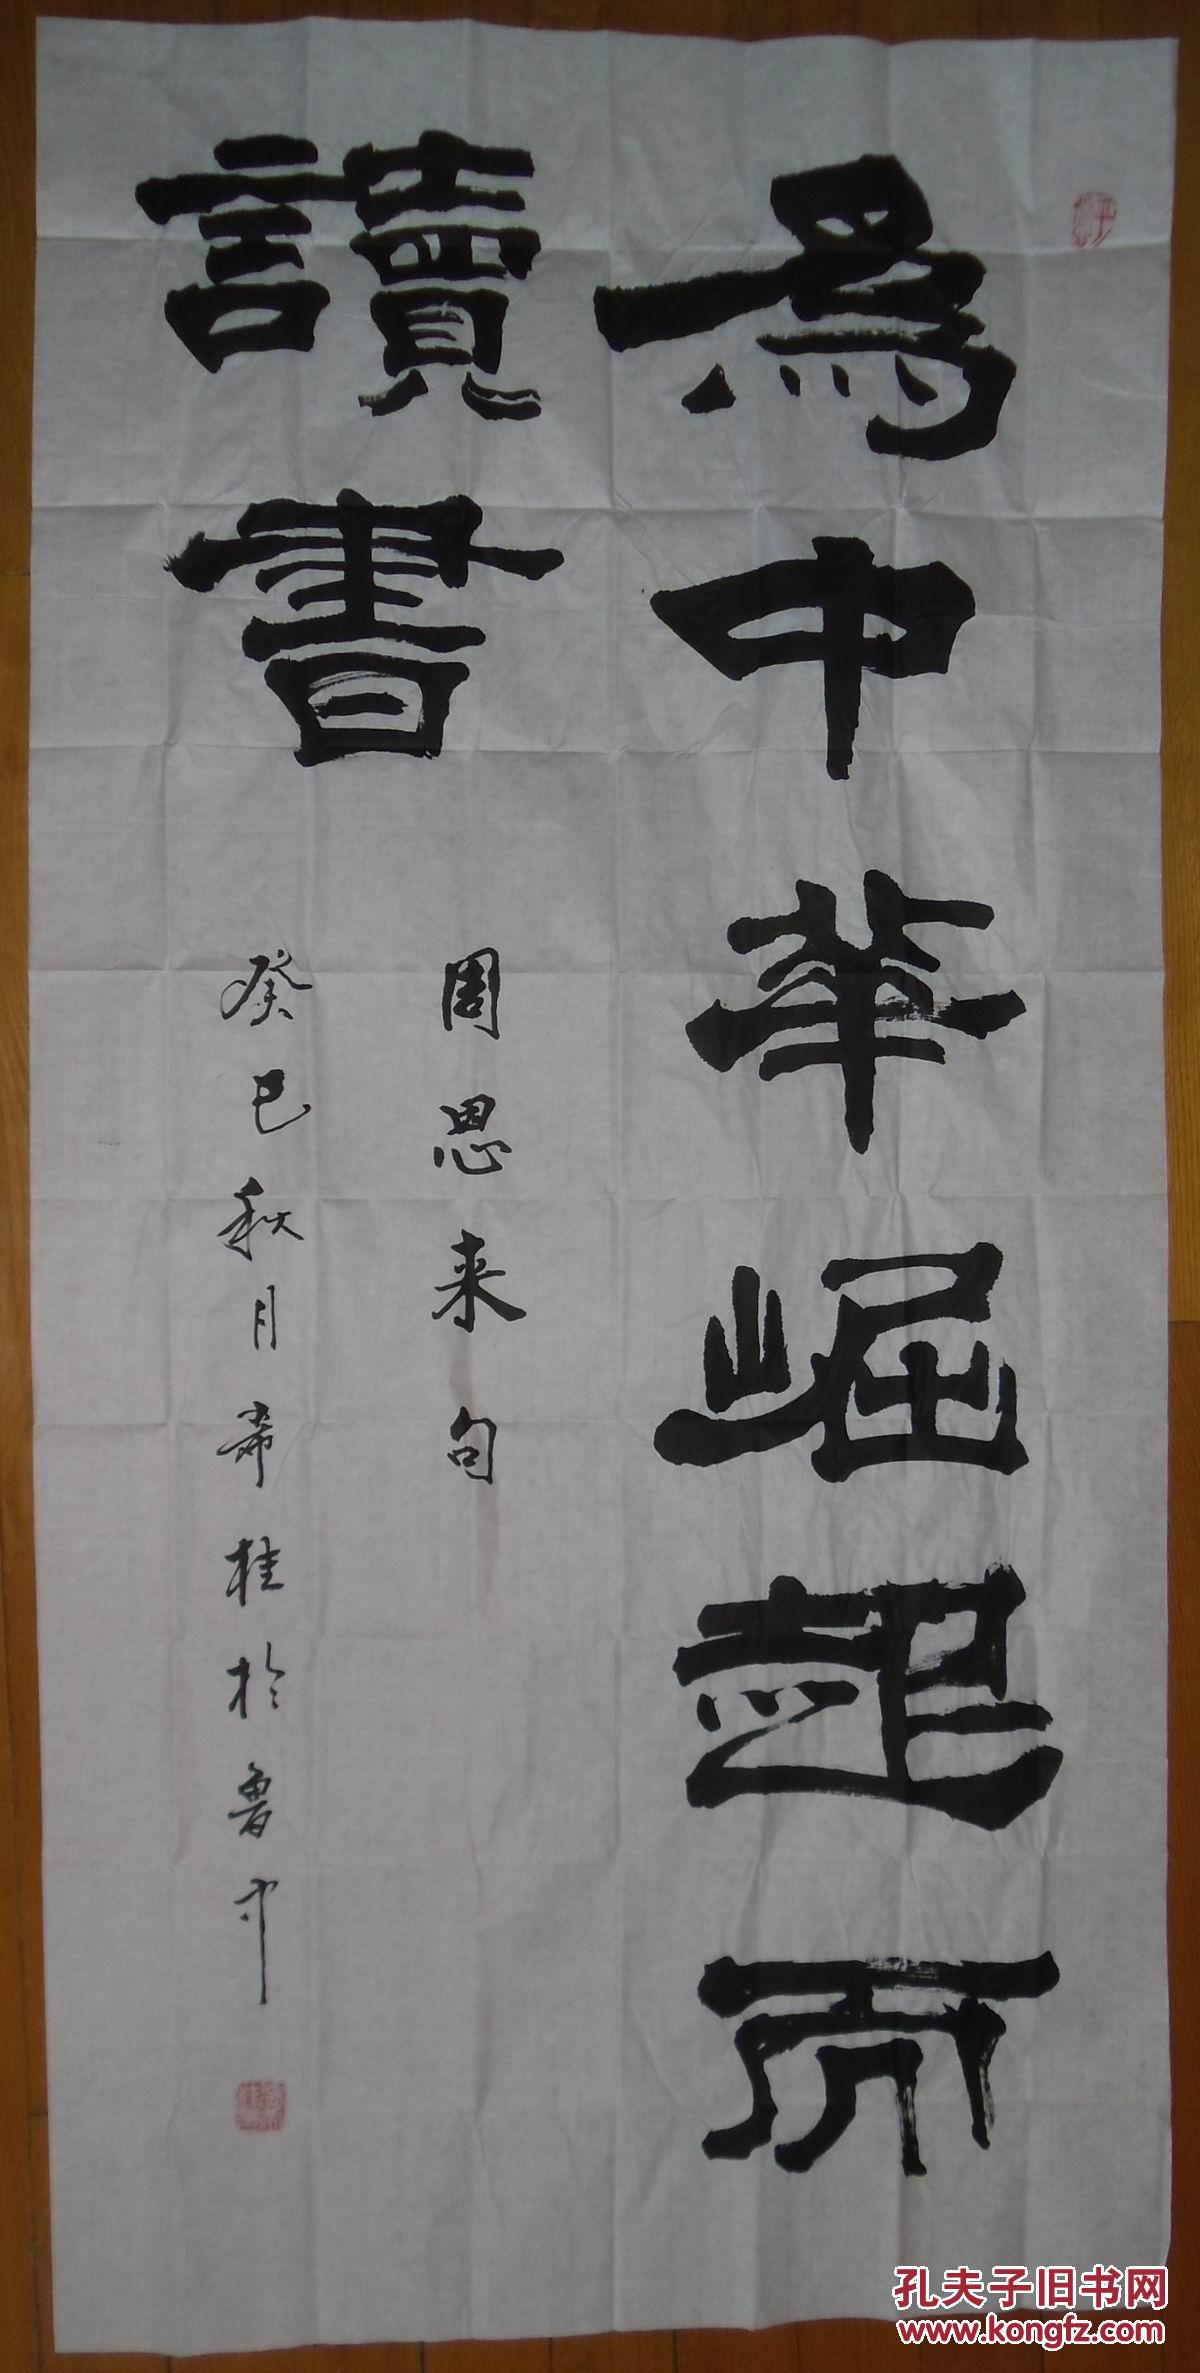 為中華崛起而
讀書
周恩来句
癸巳秋月希桂於魯中
孔夫子旧书网
www.kongfz.com